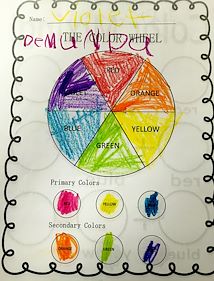 Name: Violet
Demarpa
THE COLOR WHEEL
RED
VIOLET
ORANGE
BLUE
YELLOW
GREEN
Primary Colors
RED
YELLOW
BLUE
Secondary Colors
ORANGE
GREEN